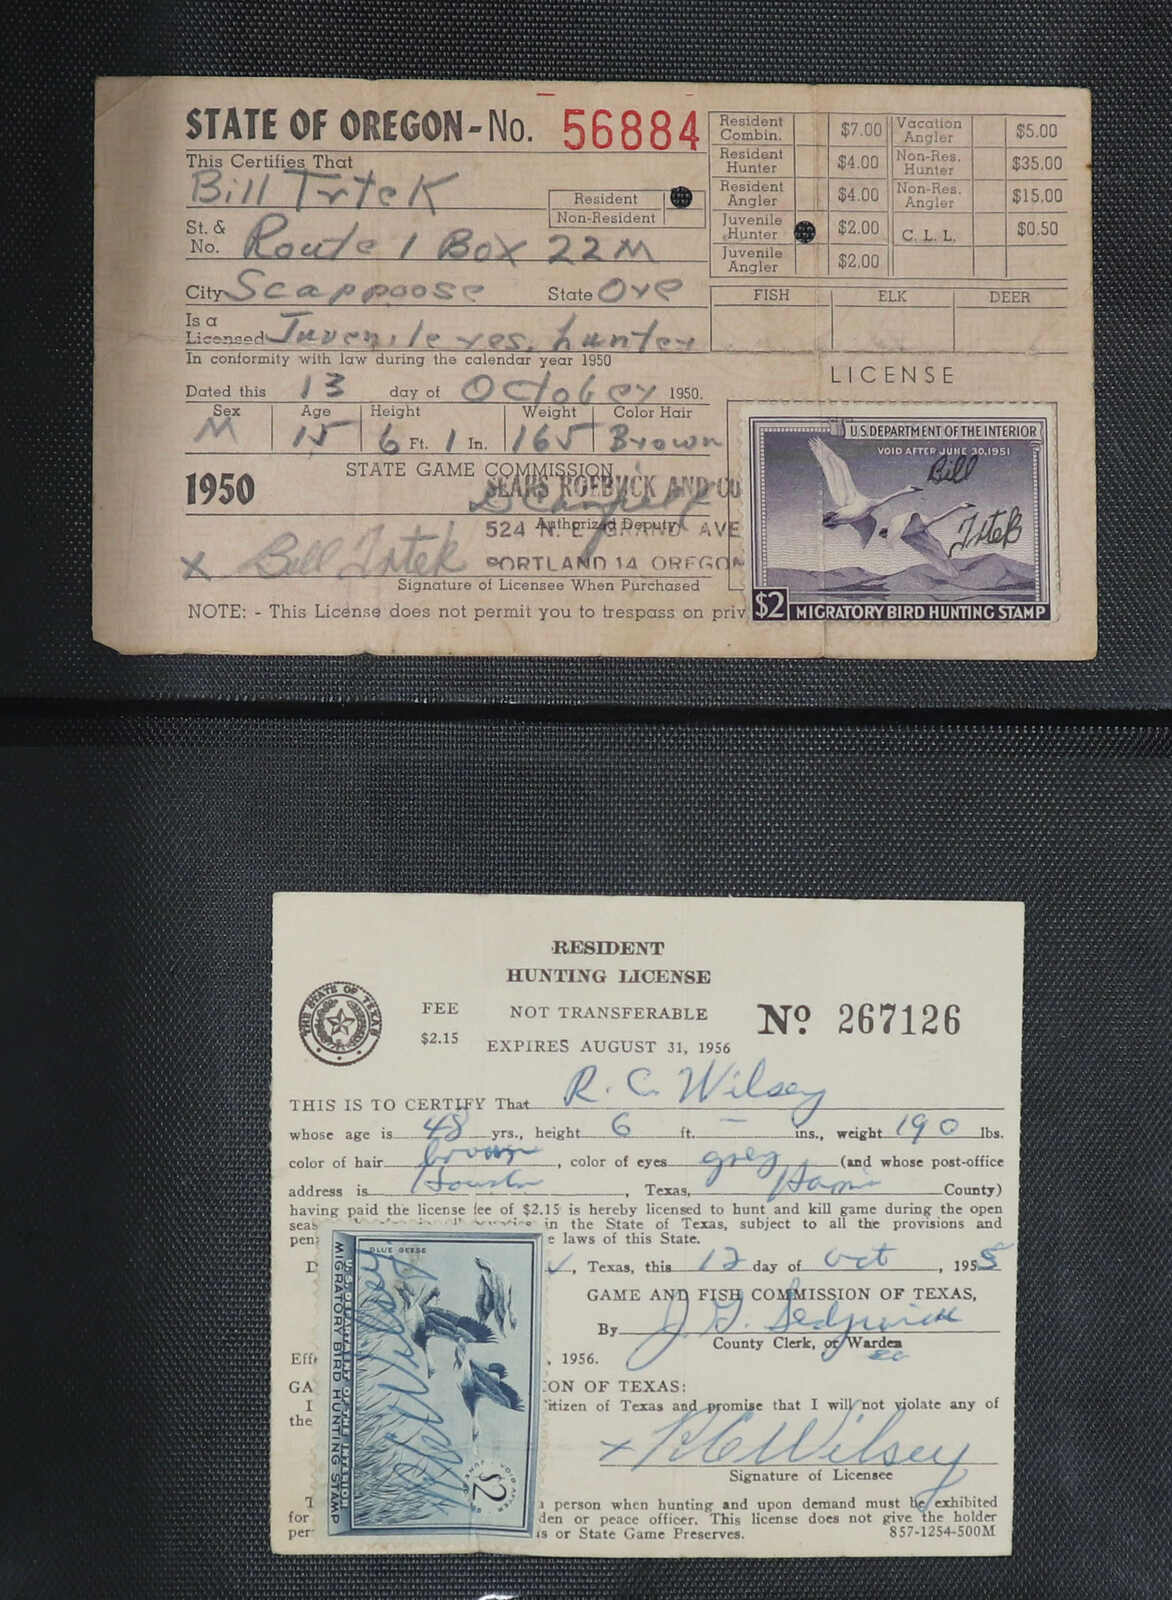 STATE OF OREGON - No. 56884
This Certifies That
Bill Trtek
Resident
Non-Resident
St. & No. Route 1 Box 22M
City Scappoose State Ore
Is a Licensed Juvenile res. hunter
In conformity with law during the calendar year 1950
Dated this 13 day of October 1950.
Sex Age Height Weight Color Hair
M 15 6 Ft. 1 In. 165 Brown
STATE GAME COMMISSION
1950
SEARS ROEBUCK AND CO
Authorized Deputy
524 N. E. GRAND AVE
PORTLAND 14 OREGON
x Bill Trtek
Signature of Licensee When Purchased
NOTE: - This License does not permit you to trespass on priv
Resident Combin. $7.00 Vacation Angler $5.00
Resident Hunter $4.00 Non-Res. Hunter $35.00
Resident Angler $4.00 Non-Res. Angler $15.00
Juvenile Hunter $2.00 C. L. L. $0.50
Juvenile Angler $2.00
FISH ELK DEER
LICENSE
U.S. DEPARTMENT OF THE INTERIOR
VOID AFTER JUNE 30, 1951
Bill
Trtek
$2 MIGRATORY BIRD HUNTING STAMP
RESIDENT
HUNTING LICENSE
THE STATE OF TEXAS
FEE
$2.15
NOT TRANSFERABLE
EXPIRES AUGUST 31, 1956
No. 267126
THIS IS TO CERTIFY That R. C. Wilsey
whose age is 48 yrs., height 6 ft. — ins., weight 190 lbs.
color of hair brown, color of eyes grey (and whose post-office
address is Houston, Texas, Harris County)
having paid the license fee of $2.15 is hereby licensed to hunt and kill game during the open
seas in the State of Texas, subject to all the provisions and
pen e laws of this State.
D , Texas, this 12 day of Oct, 1955
GAME AND FISH COMMISSION OF TEXAS,
By J. G. Sedgwick
County Clerk, or Warden
Effe , 1956.
GA ON OF TEXAS:
I itizen of Texas and promise that I will not violate any of
the
x R C Wilsey
Signature of Licensee
T person when hunting and upon demand must be exhibited
for den or peace officer. This license does not give the holder
per is or State Game Preserves. 857-1254-500M
BLUE GEESE
U.S. DEPARTMENT OF THE INTERIOR
MIGRATORY BIRD HUNTING STAMP
R C Wilsey
VOID AFTER JUNE 30
$2